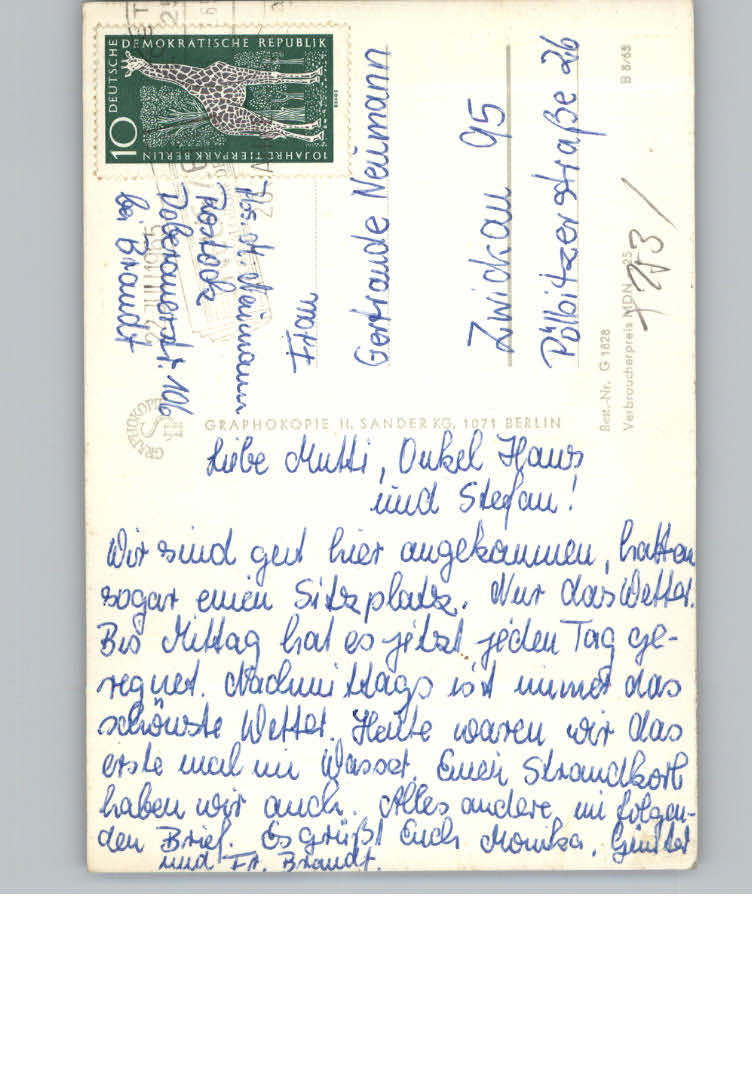 DEUTSCHE DEMOKRATISCHE REPUBLIK
10
10 JAHRE TIERPARK BERLIN
22. JULI 1965
Abs. M. Neumann
Rostock
Doberanerstr. 106
bei Brandt
Frau
Gertraude Neumann
Zwickau 95
Pölbitzerstraße 26
B 5/65
253
Best.-Nr. G 1828
Verbraucherpreis MDN -,25
GRAPHOKOPIE
GRAPHOKOPIE H. SANDER KG, 1071 BERLIN
Liebe Mutti, Onkel Hans
und Stefan!
Wir sind gut hier angekommen, hatten
sogar einen Sitzplatz. Nur das Wetter.
Bis Mittag hat es jetzt jeden Tag ge-
regnet. Nachmittags ist immer das
schönste Wetter. Heute waren wir das
erste mal im Wasser. Einen Strandkorb
haben wir auch. Alles andere im folgen-
den Brief. Es grüßt Euch Monika, Günter
und Fr. Brandt.